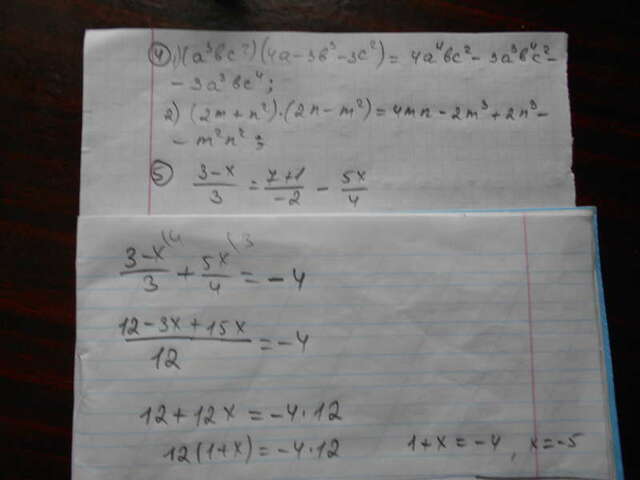 ④ 1) (a³bc²)(4a-3b³-3c²) = 4a⁴bc² - 3a³b⁴c² -
- 3a³bc⁴;
2) (2m+n²)·(2n-m²) = 4mn - 2m³ + 2n³ -
- m²n²;
⑤ (3-x)/3 = (7+1)/(-2) - 5x/4
(3-x)/3 (4 + 5x/4 (3 = -4
(12-3x+15x)/12 = -4
12+12x = -4·12
12(1+x) = -4·12 1+x = -4, x = -5